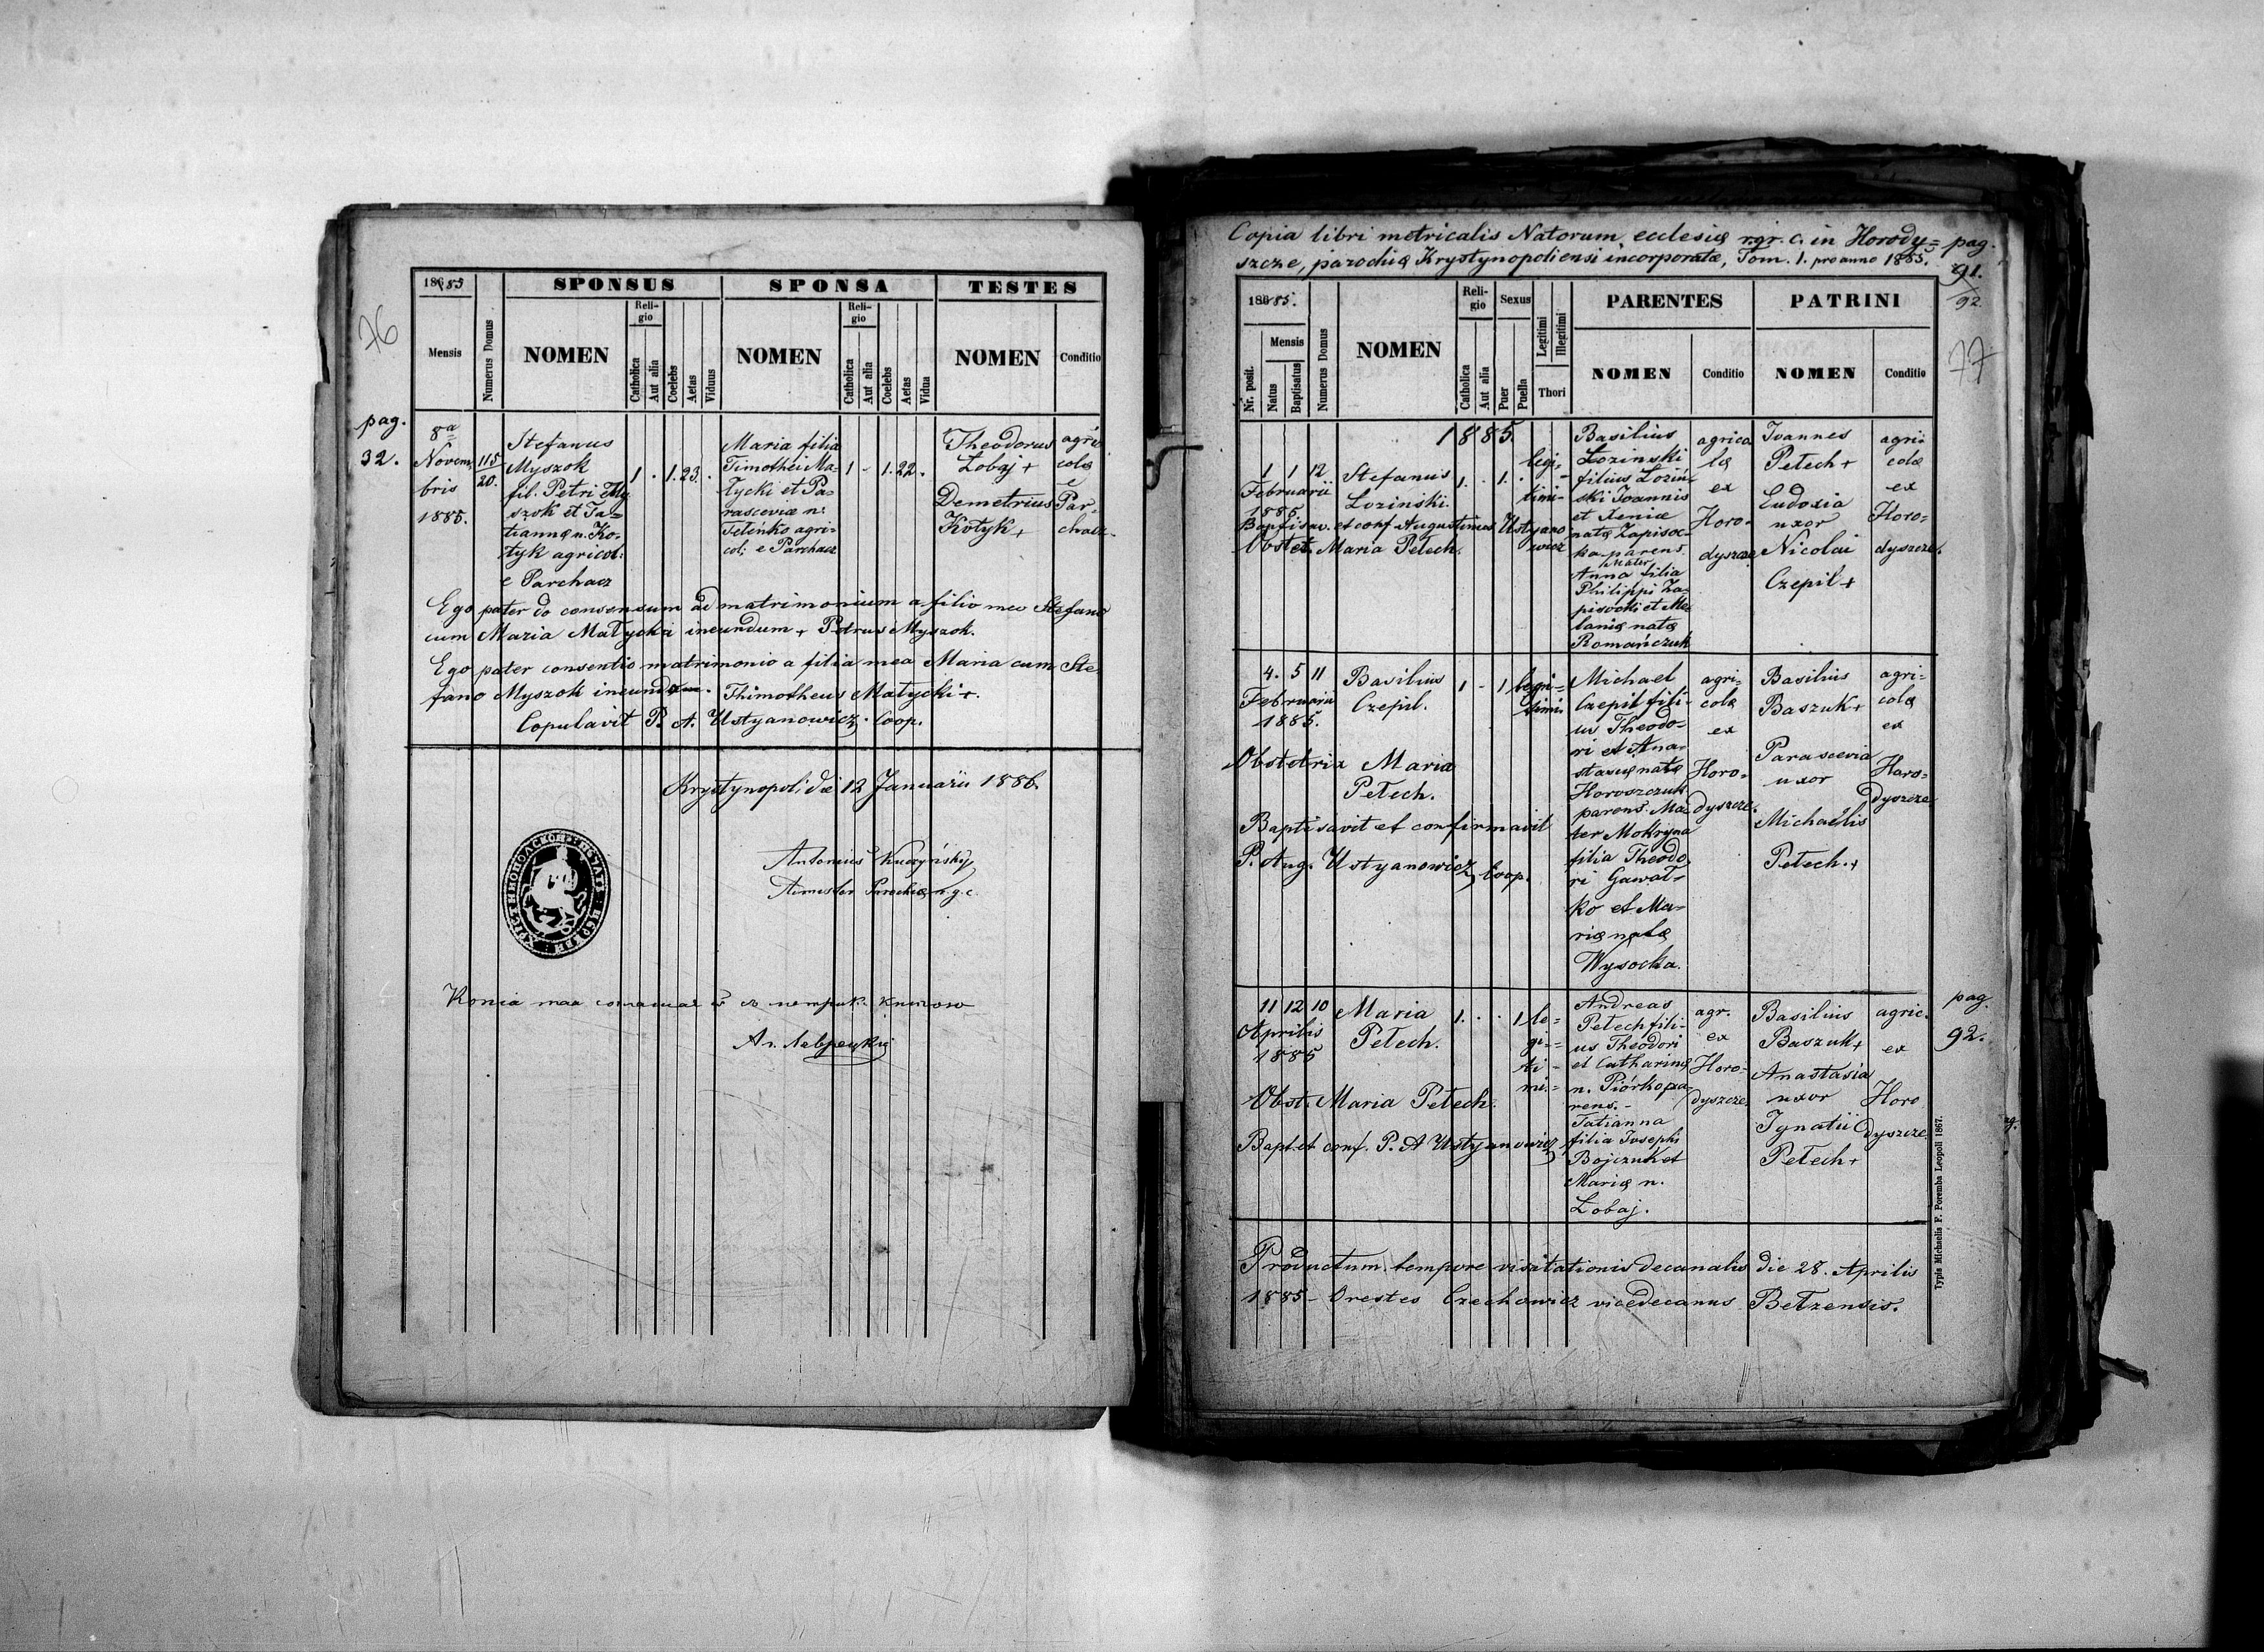 76
1885
SPONSUS
SPONSA
TESTES
Mensis
Numerus Domus
NOMEN
Reli-
gio
Catholica
Aut alia
Coelebs
Aetas
Viduus
NOMEN
Reli-
gio
Catholica
Aut alia
Coelebs
Aetas
Vidua
NOMEN
Conditio
pag.
32.
8a
Novem
bris
1885.
115
20.
Stefanus
Myszok
fil. Petri My
szok et Ta=
tiannæ n. Ko-
tyk agricol:
e Parchacz
1 . 1. 23. .
Maria filia
Timothei Ma-
łycki et Pa-
rasceviæ n:
Feteńko agri-
col: e Parchacz
1 - 1. 22. .
Theodorus
Łobaj +
Demetrius
Kotyk +
agri
colæ
e
Par-
chacz.
Ego pater do consensum ad matrimonium a filio meo Stefano
cum Maria Małycka ineundum + Petrus Myszok.
Ego pater consentio matrimonio a filia mea Maria cum Ste
fano Myszok ineundo. Thimotheus Małycki +.
Copulavit P. A. Ustyanowicz Coop.
Krystynopoli die 12 Januarii 1886.
Antonius Kuczyński
Parochiæ r. g. c.
77
Copia libri metricalis Natorum ecclesiæ r. gr. c. in Horody=
szcze, parochiæ Krystynopoliensi incorporatæ, Tom. 1. pro anno 1885.
pag.
91.
92
1885.
Nr. posit.
Mensis
Natus
Baptisatus
Numerus Domus
NOMEN
Reli-
gio
Catholica
Aut alia
Sexus
Puer
Puella
Legitimi
Illegitimi
Thori
PARENTES
NOMEN
Conditio
PATRINI
NOMEN
Conditio
1885.
1 1 12
Februarii
1885
Stefanus
Łozinski
1. . 1. .
legi-
timi-
Baptisav. et conf. Augustinus Ustyano
wicz
Obstet. Maria Petech.
Basilius
Łozinski
filius Loziń
ski Joannis
et Xeniæ
natæ Zapisoc-
ka parens.
Mater
Anna filia
Philippi Za-
pisocki et Me
laniæ natæ
Romańczuk
agrico
læ
ex
Horo-
dyszcze
Joannes
Petech +
Eudoxia
uxor
Nicolai
Czepil +
agri-
colæ
ex
Horo-
dyszcze.
4. 5 11
Februarii
1885.
Basilius
Czepil.
1 - 1
legi-
timi.
Obstetrix Maria
Petech.
Baptisavit et confirmavit
P. Aug. Ustyanowicz Coop.
Michael
Czepil fili-
us Theodo-
ri et Ana-
stasiæ natæ
Horoszczuk
parens. Ma-
ter Mokryna
filia Theodo
ri Gawoł-
ko et Ma-
riæ natæ
Wysocka.
agri-
colæ
ex
Horo-
dyszcze.
Basilius
Baszuk +
Parascevia
uxor
Michaelis
Petech. +
agri-
colæ
ex
Horo-
dyszcze
pag.
92.
11 12 10
Aprilis
1885
Maria
Petech.
1. . . 1
le-
gi-
ti-
mi.-
Obst. Maria Petech.
Bapt. et conf. P. A Ustyanowicz
Andreas
Petech fili-
us Theodori
et Catharinæ
n. Piórko pa-
rens.-
Tatianna
filia Josephi
Bojczuk et
Mariæ n.
Łobaj.
agr.
ex
Horo-
dyszcze.
Basilius
Baszuk +
Anastasia
uxor
Ignatii
Petech +
agric.
ex
Horo
dyszcze
Productum tempore visitationis decanalis die 28. Aprilis
1885 - Orestes Czechowicz vicedecanus Bełzensis.
Typis Michaelis F. Poremba Leopoli 1867.